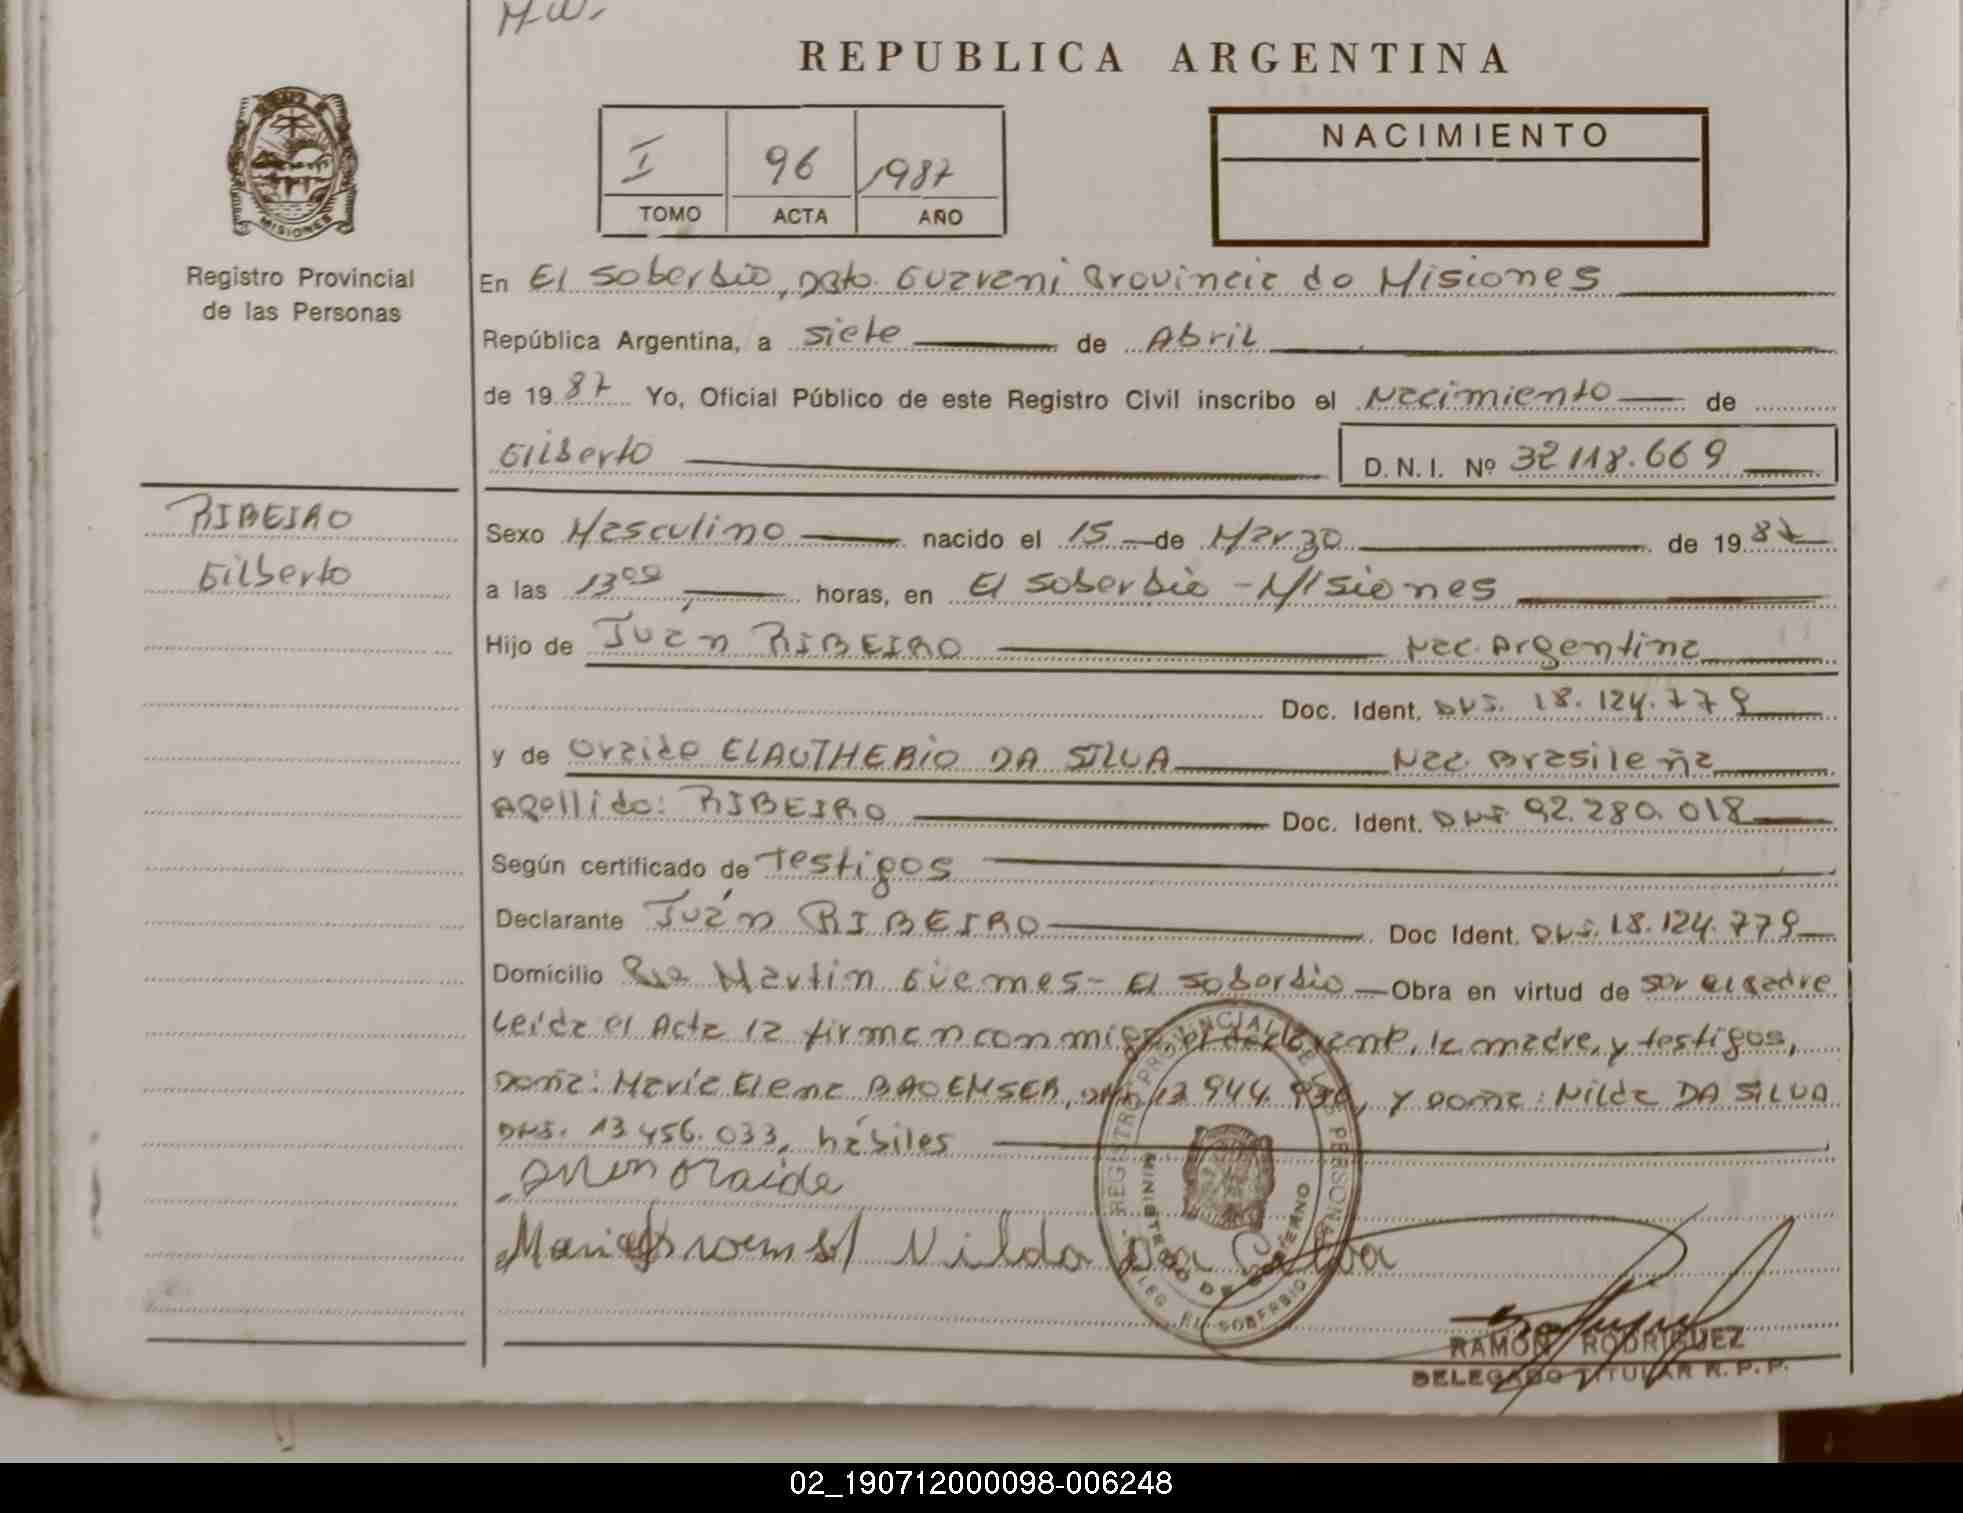 H.W.
REPUBLICA ARGENTINA
I 96 1987
TOMO ACTA AÑO
NACIMIENTO
MISIONES
Registro Provincial
de las Personas
En El Soberbio, Dpto. Guarani Provincia de Misiones
República Argentina, a siete de Abril
de 1987 Yo, Oficial Público de este Registro Civil inscribo el Nacimiento de
Gilberto D.N.I. Nº 32.118.669
RIBEIRO
Gilberto
Sexo Masculino nacido el 15 de Marzo de 1987
a las 13,00 horas, en El Soberbio - Misiones
Hijo de Juán RIBEIRO Nac. Argentina
Doc. Ident. DNI. 18.124.779
y de Oraide ELAUTHERIO DA SILVA Nac. Brasileña
Apellido: RIBEIRO Doc. Ident. DNI. 92.280.018
Según certificado de Testigos
Declarante Juán RIBEIRO Doc Ident. DNI. 18.124.779
Domicilio Martin Güemes - El Soberbio Obra en virtud de ser el padre
Leída el Acta la firman conmigo, el declarante, la madre, y testigos,
Doña: María Elena BAOEMSER, DNI. 944. y Doña: Nilda DA SILVA
DNI. 13.456.033, hábiles
Oraide
Maria Nilda Da Silva
REGISTRO PROVINCIAL DE LAS PERSONAS
MINISTERIO DE GOBIERNO
DELEG. EL SOBERBIO
RAMON RODRIGUEZ
DELEGADO TITULAR R.P.P.
02_190712000098-006248